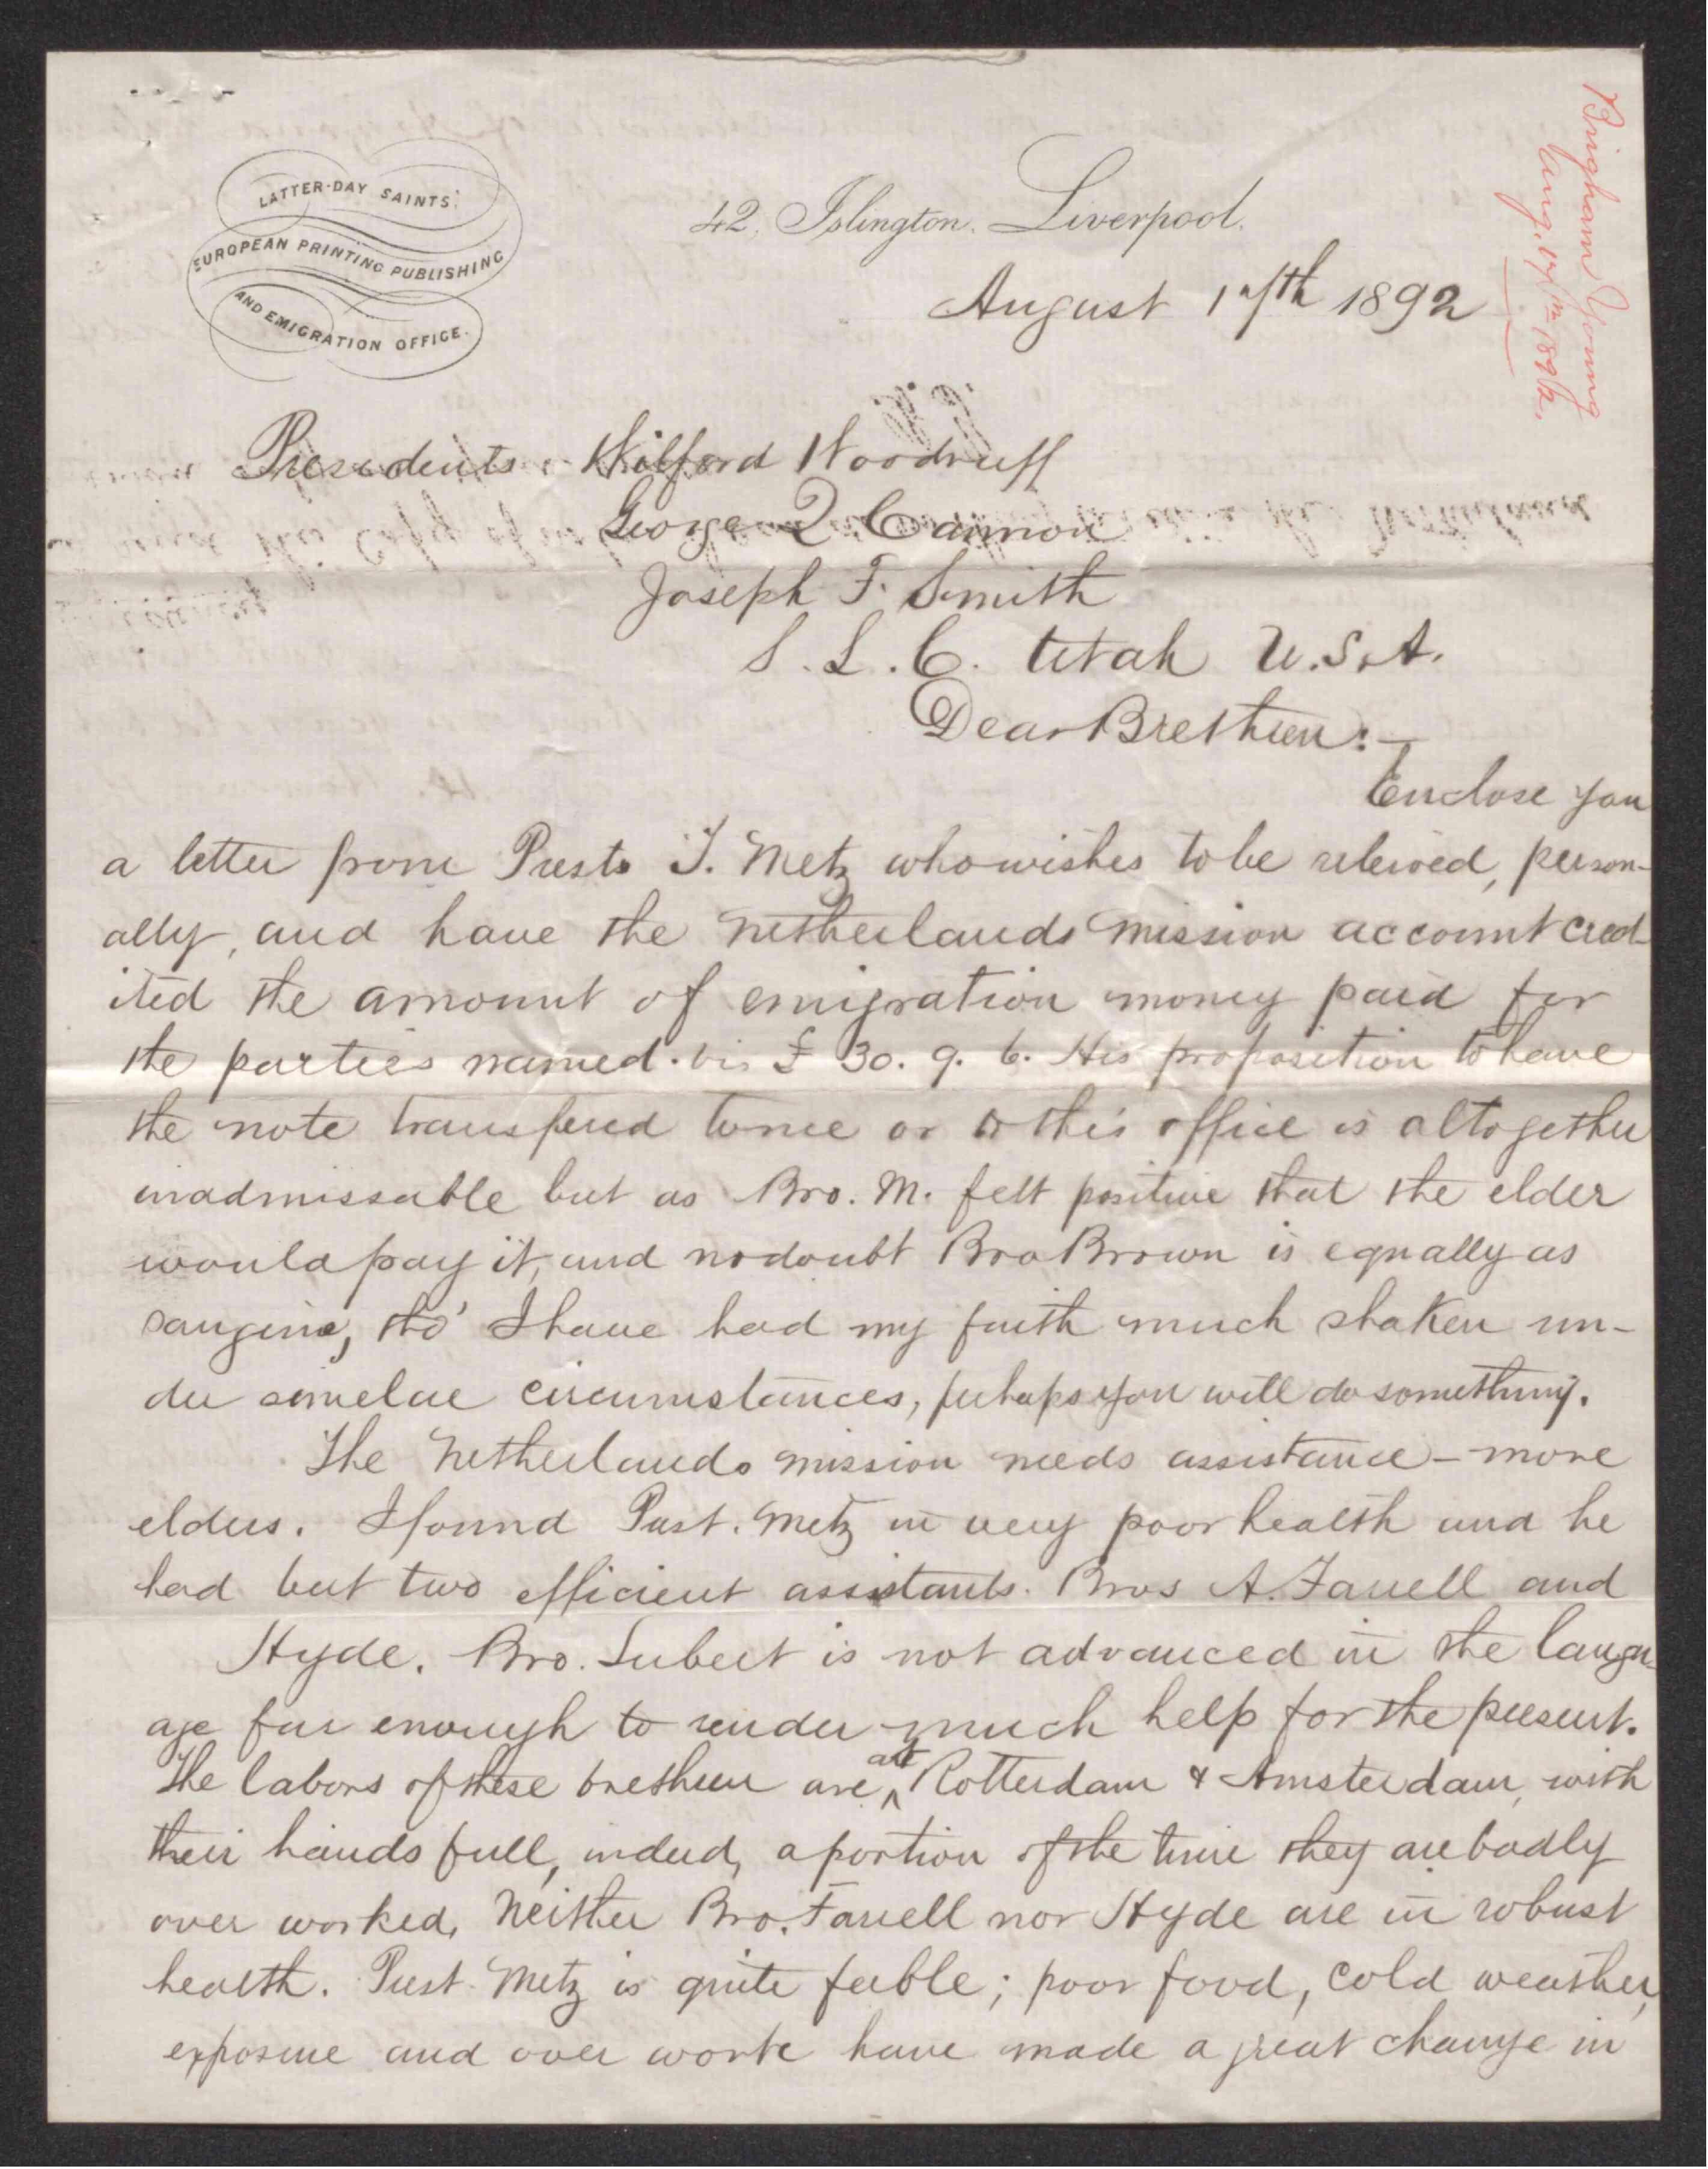 LATTER-DAY SAINTS'
EUROPEAN PRINTING PUBLISHING
AND EMIGRATION OFFICE.
42, Islington, Liverpool.
August 17th 1892
Brigham Young
Aug. 17th 1892.
Presidents Wilford Woodruff
George Q Cannon
Joseph F. Smith
S. L. C. Utah U.S.A.
Dear Brethren:-
Enclose you
a letter from Prest T. Metz who wishes to be releived, person-
ally, and have the Netherlands mission account cred-
ited the amount of emigration money paid for
the parties named. vis £ 30. 9. 6. His proposition to have
the note transfered to me or to this office is altogether
inadmissable but as Bro. M. felt positive that the elder
would pay it, and no doubt Bro Brown is equally as
sangine, tho' I have had my faith much shaken un-
der similar circumstances, perhaps you will do something.
The Netherlands mission needs assistance - more
elders. I found Prest. Metz in very poor health and he
had but two efficient assistants. Bros A. Farrell and
Hyde. Bro. Lubert is not advanced in the langu-
age far enough to render much help for the present.
The labors of these brethren are at Rotterdam & Amsterdam, with
their hands full, indeed, a portion of the time they are badly
over worked, Neither Bro. Farrell nor Hyde are in robust
health. Prest. Metz is quite feeble; poor food, cold weather,
exposure and over work have made a great change in